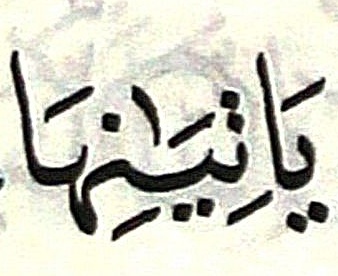 يَاتِيَٰنِهَا